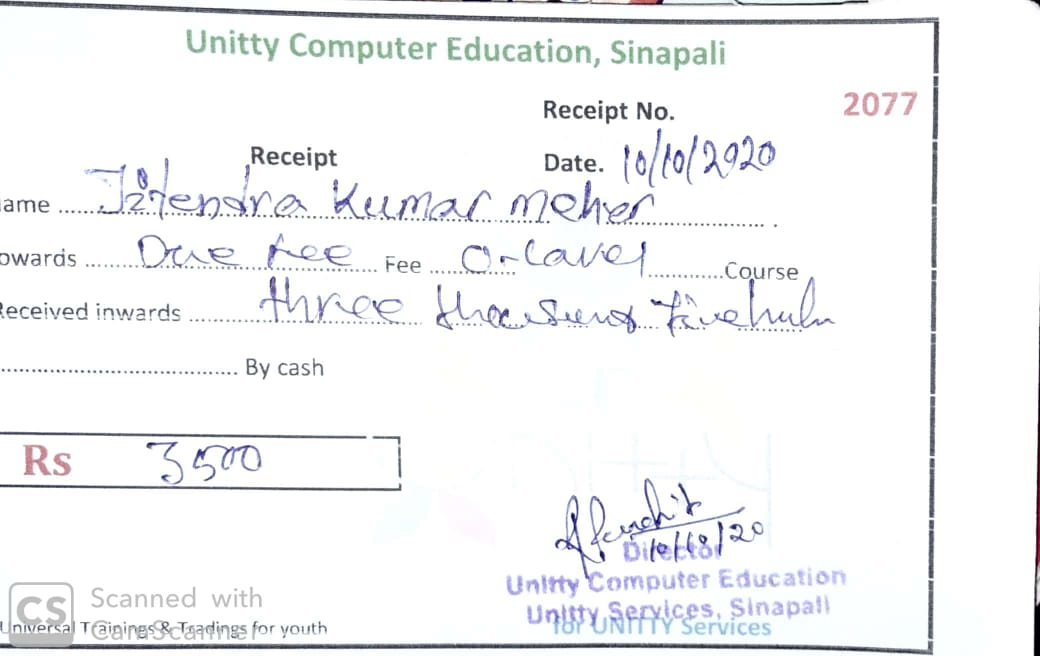 Unitty Computer Education, Sinapali
Receipt No. 2077
Receipt Date. 10/10/2020
ame ...... Jitendra Kumar meher
owards ...... Due fee Fee ...... O-Lavel ...... Course
Received inwards ...... three thousand
...... By cash
Rs 3500
10/10/20
Director
Unitty Computer Education
Unitty Services, Sinapali
for UNITTY Services
CS Scanned with
CamScanner
Universal Trainings & Tradings for youth